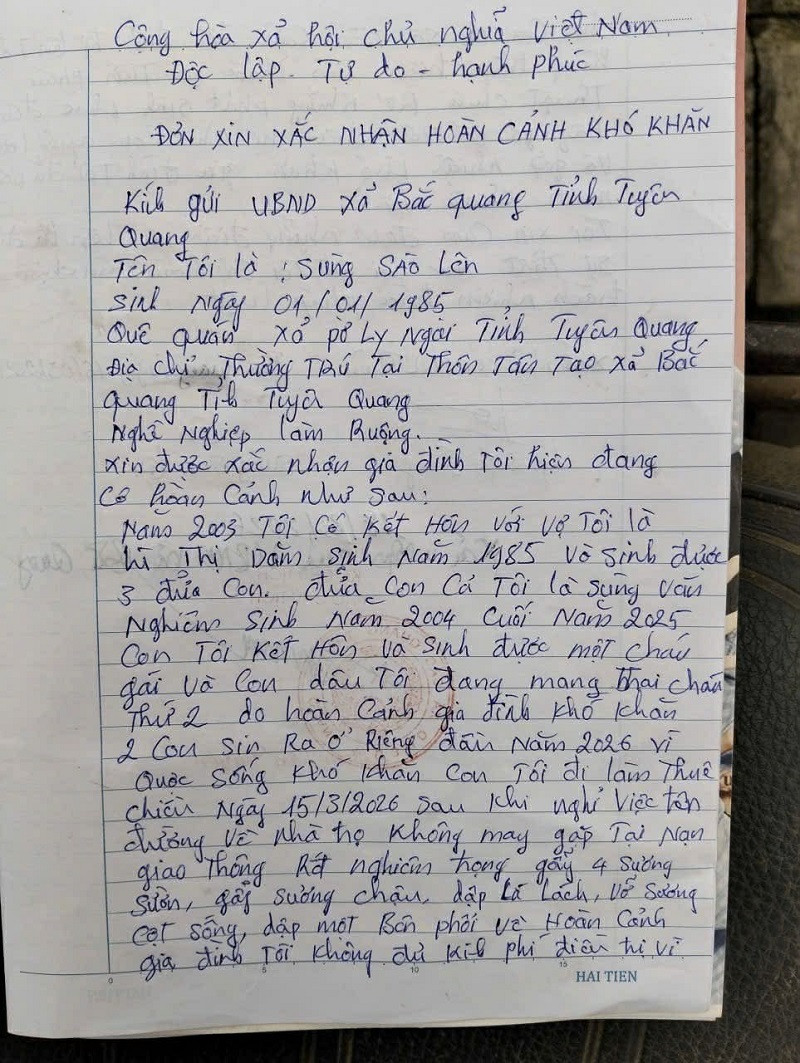 Cộng hòa xả hội chủ nghiả Việt Nam
Độc lập. Tự do - hạnh phúc
ĐƠN XIN XẮC NHẬN HOÀN CẢNH KHÓ KHĂN
Kích gửi UBND xả Bắc quang Tỉnh Tuyên
Quang
Tên Tôi là : Sùng SAO Lên
Sinh Ngày 01/01/1985
Quê quán xả pờ Ly Ngài Tỉnh Tuyên Quang
Địa chỉ Thường TRú Tại Thôn Tân Tạo xả Bắc
Quang Tỉh Tuyên Quang
Nghề Nghiệp làm Ruộng.
xin được xác nhận gia đình Tôi hiện đang
Có hoàn Cảnh như Sau:
Năm 2003 Tôi Có Kết Hôn với vợ Tôi là
Lì Thị Dấm Sinh Năm 1985 Và Sinh được
3 đứa Con. đứa Con Cả Tôi là Sùng Văn
Nghiêm Sinh Năm 2004 Cuối Năm 2025
Con Tôi Kết Hôn Và Sinh được một cháu
gái và Con dâu Tôi đang mang Thai cháu
Thứ 2 do hoàn Cảnh gia đình Khó Khăn
2 Con Sin Ra Ở Riêng đầu Năm 2026 vì
Quộc Sống Khó Khăn Con Tôi đi làm Thuê
chiều Ngày 15/3/2026 Sau Khi nghỉ Việc tên
đường Về nhà trọ Không may gặp Tại Nạn
giao Thông Rất nghiêm trọng gẫy 4 Sương
Sườn, gẫy Sương chậu, dập lá Lách, Vở Sương
Cột Sống, dập một Bên phổi Và Hoàn Cảnh
gia đình Tôi Không đủ Kinh phí điều trị vì
HAI TIEN
0 5 10 15